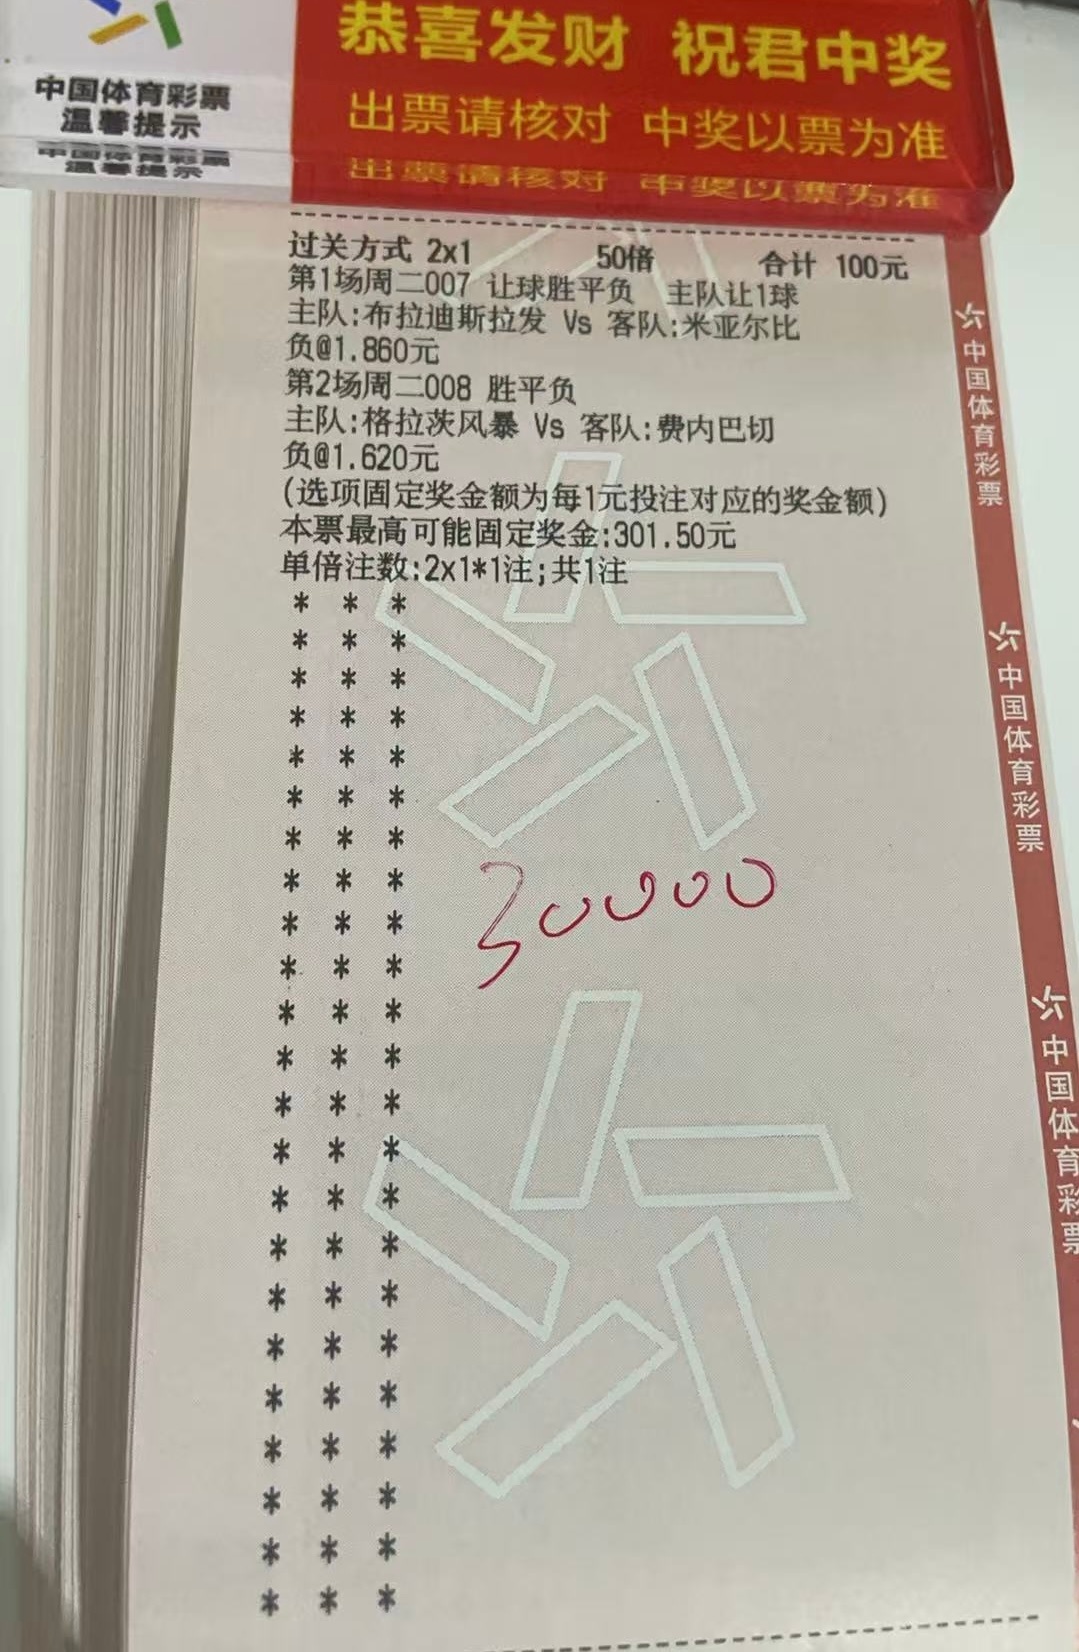 恭喜发财 祝君中奖
中国体育彩票
温馨提示
出票请核对 中奖以票为准
过关方式 2x1 50倍 合计 100元
第1场周二007 让球胜平负 主队让1球
主队:布拉迪斯拉发 Vs 客队:米亚尔比
负@1.860元
第2场周二008 胜平负
主队:格拉茨风暴 Vs 客队:费内巴切
负@1.620元
(选项固定奖金额为每1元投注对应的奖金额)
本票最高可能固定奖金:301.50元
单倍注数:2x1*1注;共1注
* * *
* * *
* * *
* * *
* * *
* * *
* * *
* * *
* * *
* * *
* * *
* * *
* * *
* * *
* * *
* * *
* * *
* * *
* * *
* * *
* * *
* * *
* * *
30000
中国体育彩票
中国体育彩票
中国体育彩票